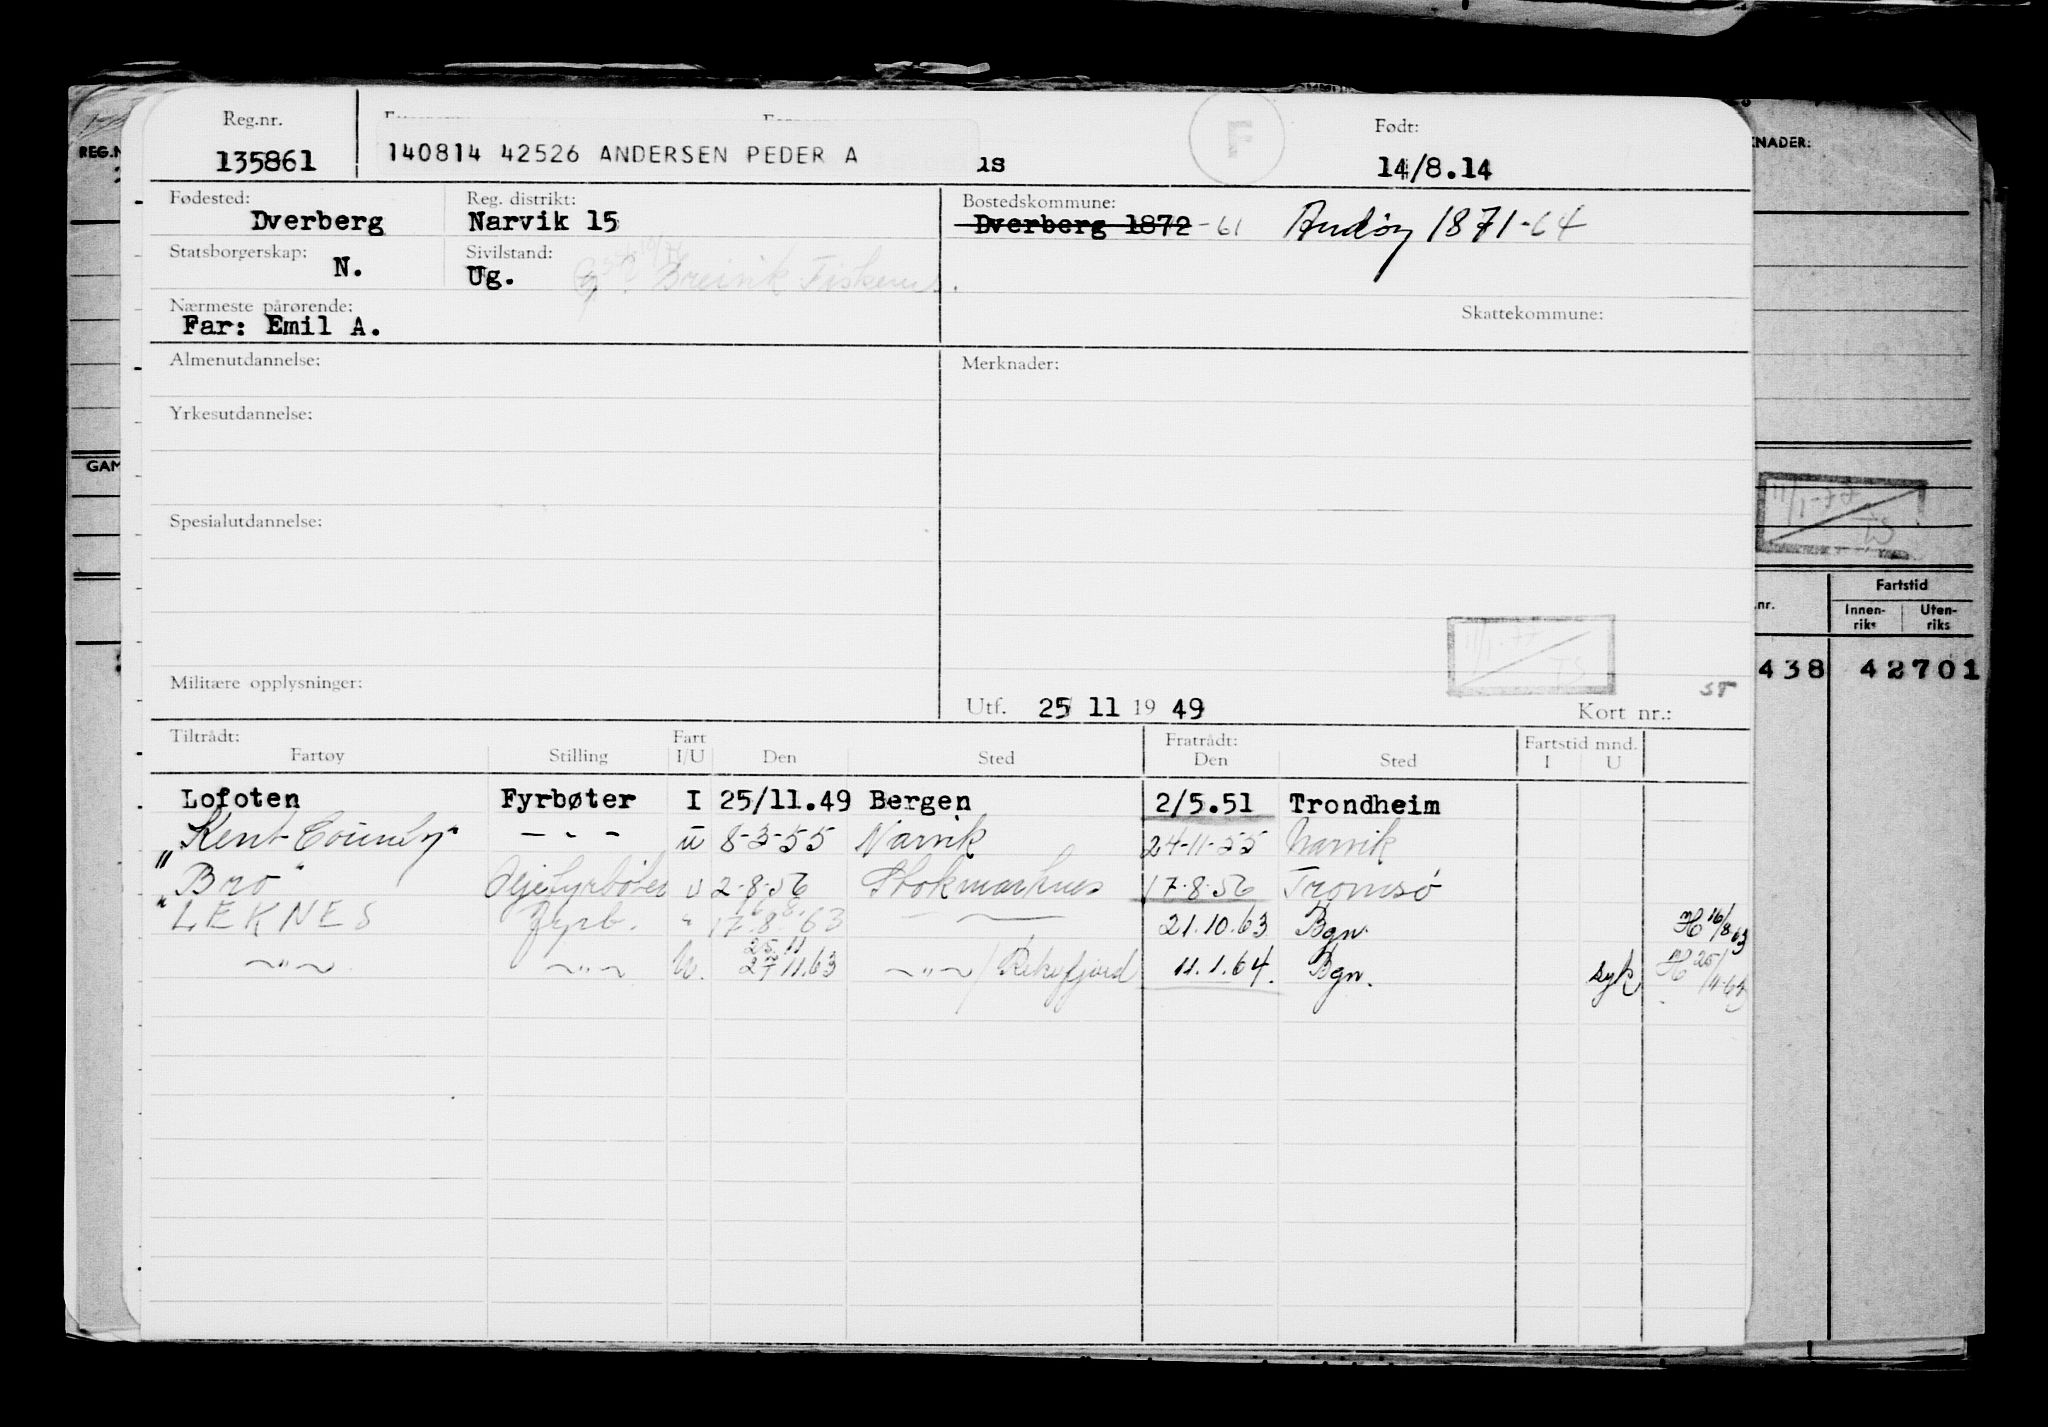 Reg.nr.
135861
140814 42526 ANDERSEN PEDER A
is
F
Født:
14/8.14
Fødested:
Dverberg
Reg. distrikt:
Narvik 15
Bostedskommune:
Dverberg 1872 -61 Andøy 1871-64
Statsborgerskap:
N.
Sivilstand:
Ug.
Breivik Fiskenes.
Nærmeste pårørende:
Far: Emil A.
Skattekommune:
Almenutdannelse:
Merknader:
Yrkesutdannelse:
Spesialutdannelse:
Militære opplysninger:
11/1-77 TS
ST
Utf. 25 11 19 49
Kort nr.:
Tiltrådt:
Fartøy Stilling Fart I/U Den Sted
Fratrådt:
Den Sted
Fartstid mnd.
I U
Lofoten Fyrbøter I 25/11.49 Bergen 2/5.51 Trondheim
"Kent County" — - — u 8-3-55 Narvik 24-11-55 Narvik
"Bro" u 2-8-56 Stokmarknes 17-8-56 Tromsø
"LEKNES Fyrb. " 17.8.63 — 21.10.63 Bgn. 16/8 63
—"— —"— U. 25.11 27.11.63 —"— / Rekefjord 11.1.64. Bgn. syk
REG.N
GAM
KNADER:
11/1-77 TS
nr.
Fartstid
Innen-riks
Uten-riks
438 42701